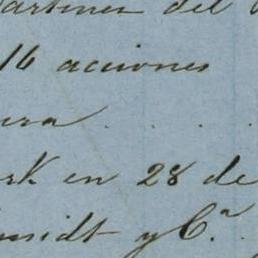 artinez del
16 acciones
era . . . .
rk en 28 de
midt y Cª.